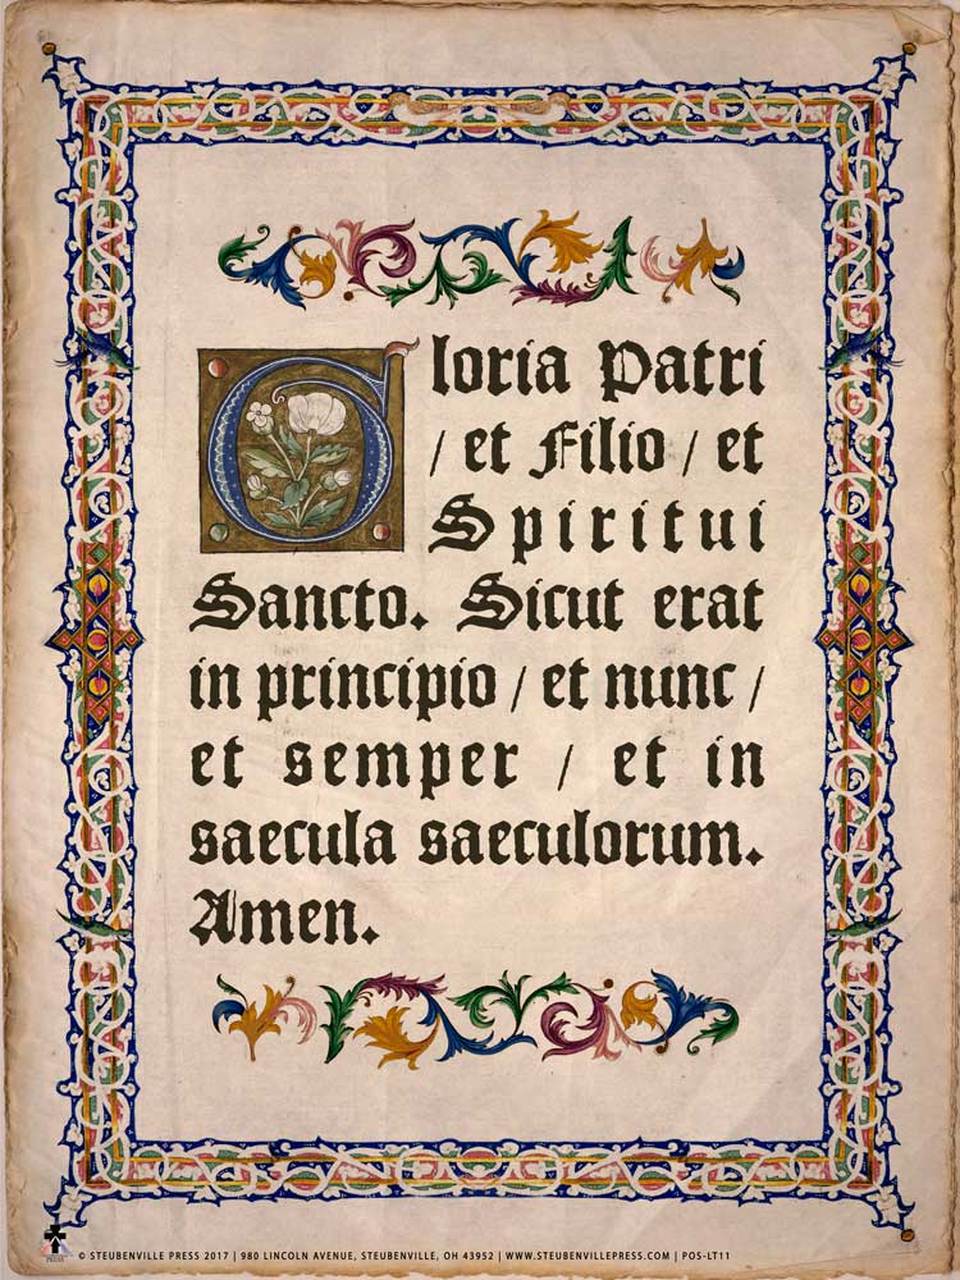 Gloria Patri
/ et Filio / et
Spiritui
Sancto. Sicut erat
in principio / et nunc /
et semper / et in
saecula saeculorum.
Amen.
PRESS
© STEUBENVILLE PRESS 2017 | 980 LINCOLN AVENUE, STEUBENVILLE, OH 43952 | WWW.STEUBENVILLEPRESS.COM | POS-LT11